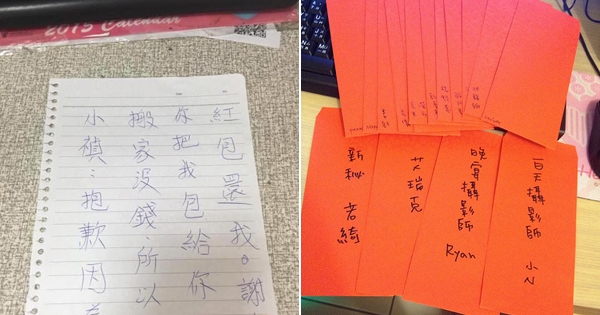 2015 Calendar
小禎:抱歉因為
搬家沒錢,所以
你把我包給你
紅包還我。謝
新秘 若綺
艾瑞克
晚宴攝影師 Ryan
白天攝影師 小N